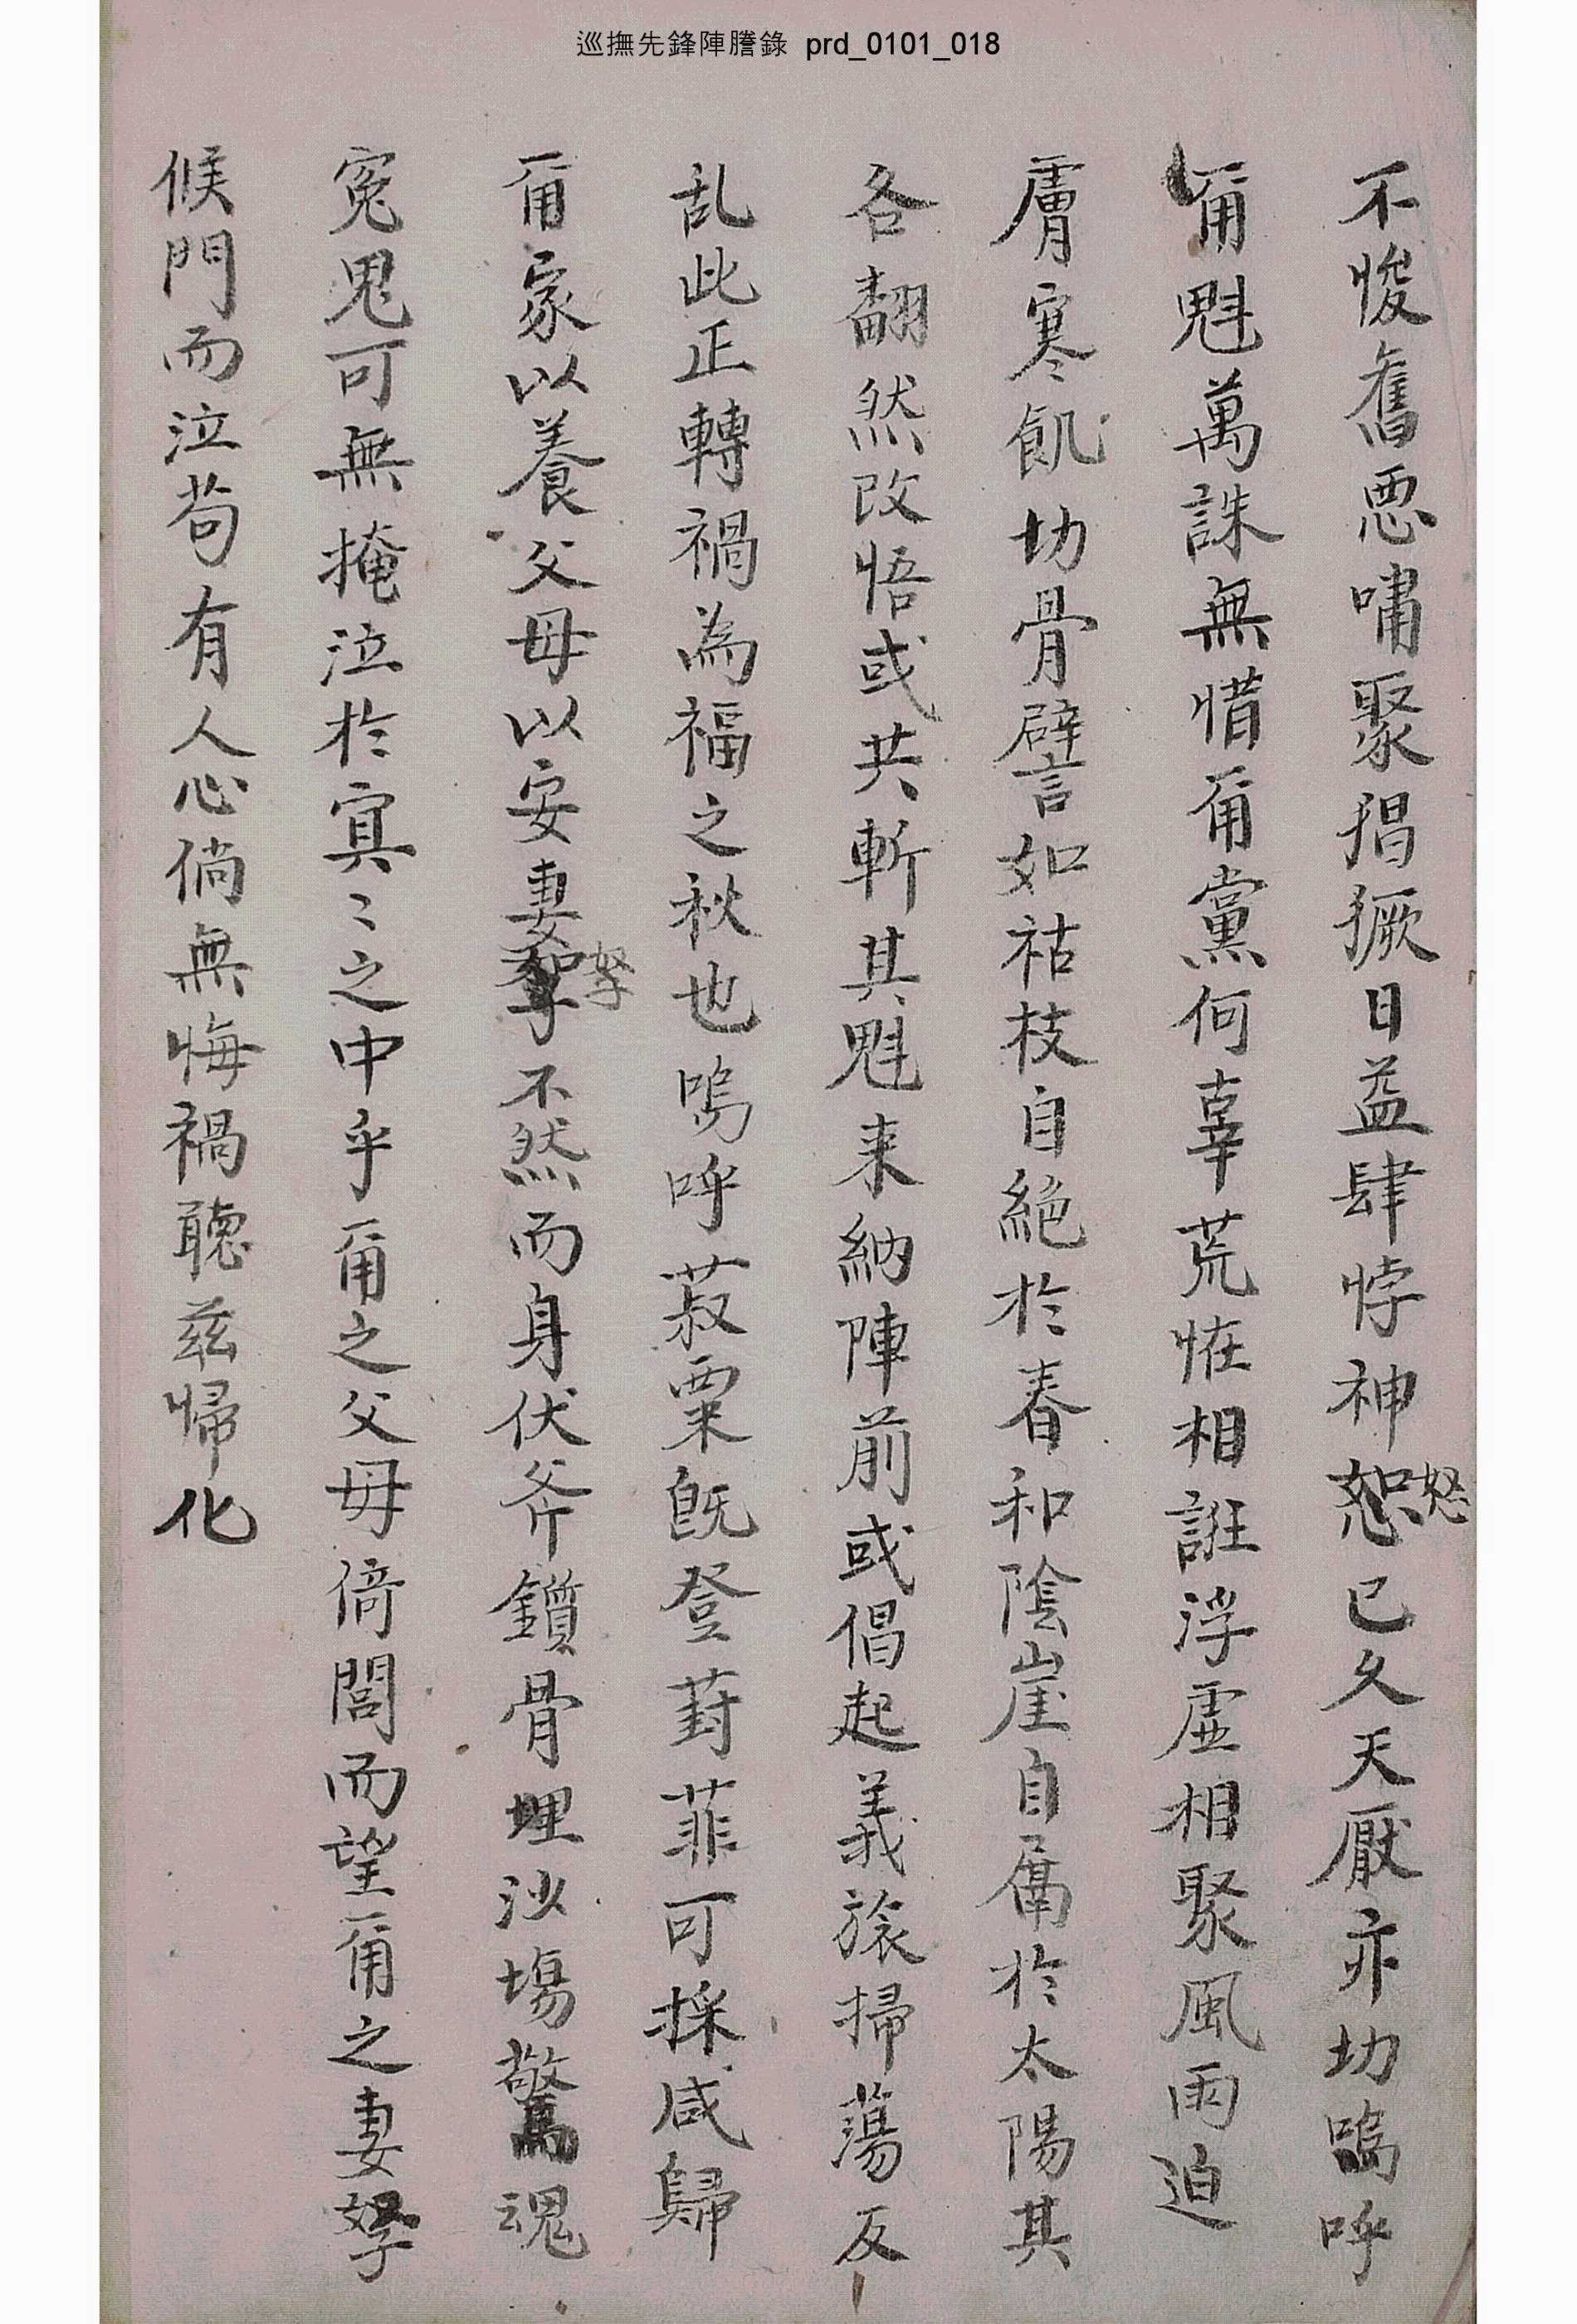 巡撫先鋒陣謄錄 prd_0101_018
不悛舊悪嘯聚猖獗日益肆悖神恕已久天厭亦切嗚呼
怒
甭魁萬誅無惜甭黨何辜荒恠相誑浮虛相聚風雨迫
膚寒飢切骨譬如祜枝自絶於春和陰崖自屬於太陽其
各翻然改悟或共斬其魁来納陣前或倡起義旅掃蕩反
乱此正轉禍為福之秋也嗚呼菽粟旣登葑菲可採咸歸
甭家以養父母以安妻孥不然而身伏斧鑕骨埋沙塲驚魂
孥
寃鬼可無掩泣於㝠〻之中乎甭之父母倚閭而望甭之妻孥
候門而泣苟有人心倘無悔禍聽玆帰化